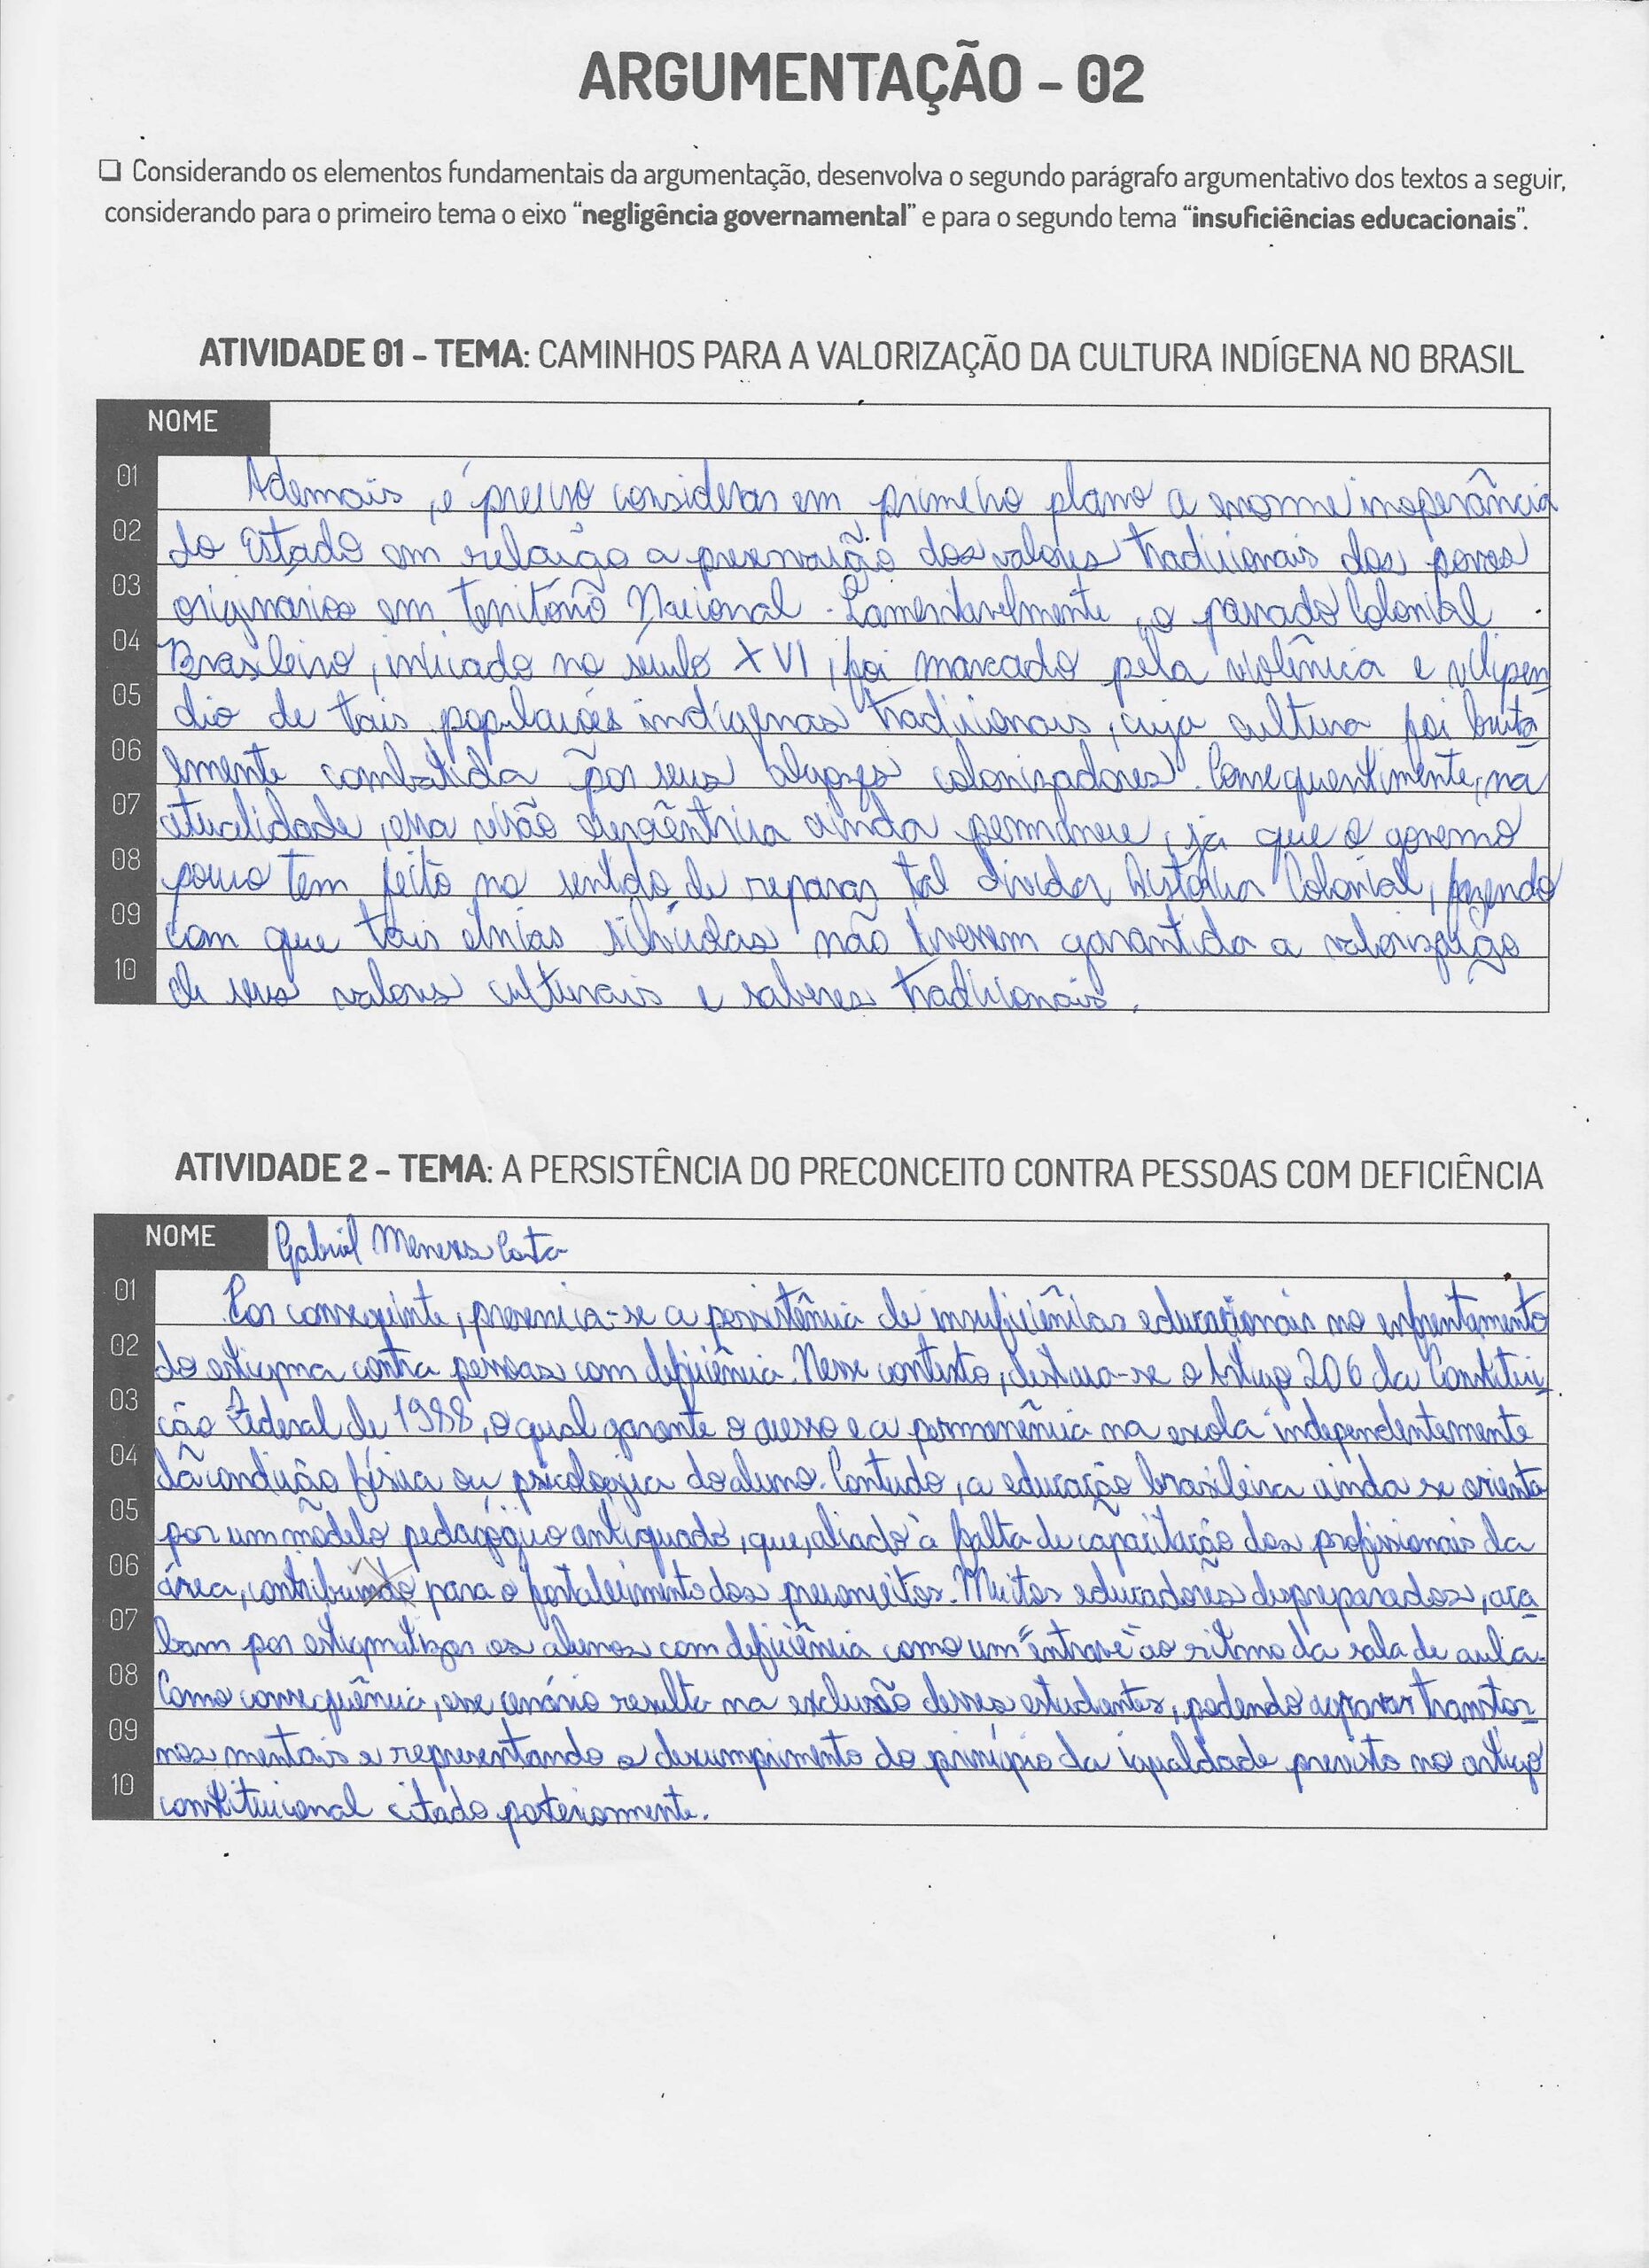 ARGUMENTAÇÃO - 02
❑ Considerando os elementos fundamentais da argumentação, desenvolva o segundo parágrafo argumentativo dos textos a seguir,
considerando para o primeiro tema o eixo "negligência governamental" e para o segundo tema "insuficiências educacionais".
ATIVIDADE 01 - TEMA: CAMINHOS PARA A VALORIZAÇÃO DA CULTURA INDÍGENA NO BRASIL
NOME
01 Ademais, é preciso considerar em primeiro plano a enorme inoperância
02 do Estado em relação a preservação dos valores tradicionais dos povos
03 originarios em território Nacional. Lamentavelmente, o passado Colonial
04 Brasileiro, iniciado no século XVI, foi marcado pela violência e vilipen
05 dio de tais populações indígenas tradicionais, cuja cultura foi bruta
06 lmente combatida por seus algozes colonizadores. Consequentimente, na
07 atualidade, essa visão eurocêntrica ainda permanece, já que o governo
08 pouco tem feito no sentido de reparar tal divida histórica Colonial, fazendo
09 com que tais etnias não tivessem garantido a valorização
10 de seus valores culturais e saberes tradicionais.
ATIVIDADE 2 - TEMA: A PERSISTÊNCIA DO PRECONCEITO CONTRA PESSOAS COM DEFICIÊNCIA
NOME Gabriel Menezes Costa
01 Por conseguinte, presencia-se a persistência de insuficiências educacionais no enfrentamento
02 do estigma contra pessoas com deficiência. Nesse contexto, destaca-se o Artigo 206 da Constitui-
03 ção Federal de 1988, o qual garante o acesso e a permanência na escola independentemente
04 da condição física ou psicológica do aluno. Contudo, a educação brasileira ainda se orienta
05 por um modelo pedagógico antiquado, que, aliado à falta de capacitação dos profissionais da
06 área, contribuindo para o fortalecimento dos preconceitos. Muitos educadores despreparados, aca
07 bam por estigmatizar os alunos com deficiência como um "entrave" ao ritmo da sala de aula.
08 Como consequência, esse cenário resulta na exclusão desses estudantes, podendo agravar transtor-
09 nos mentais e representando o descumprimento do princípio da igualdade previsto no artigo
10 constitucional citado posteriormente.